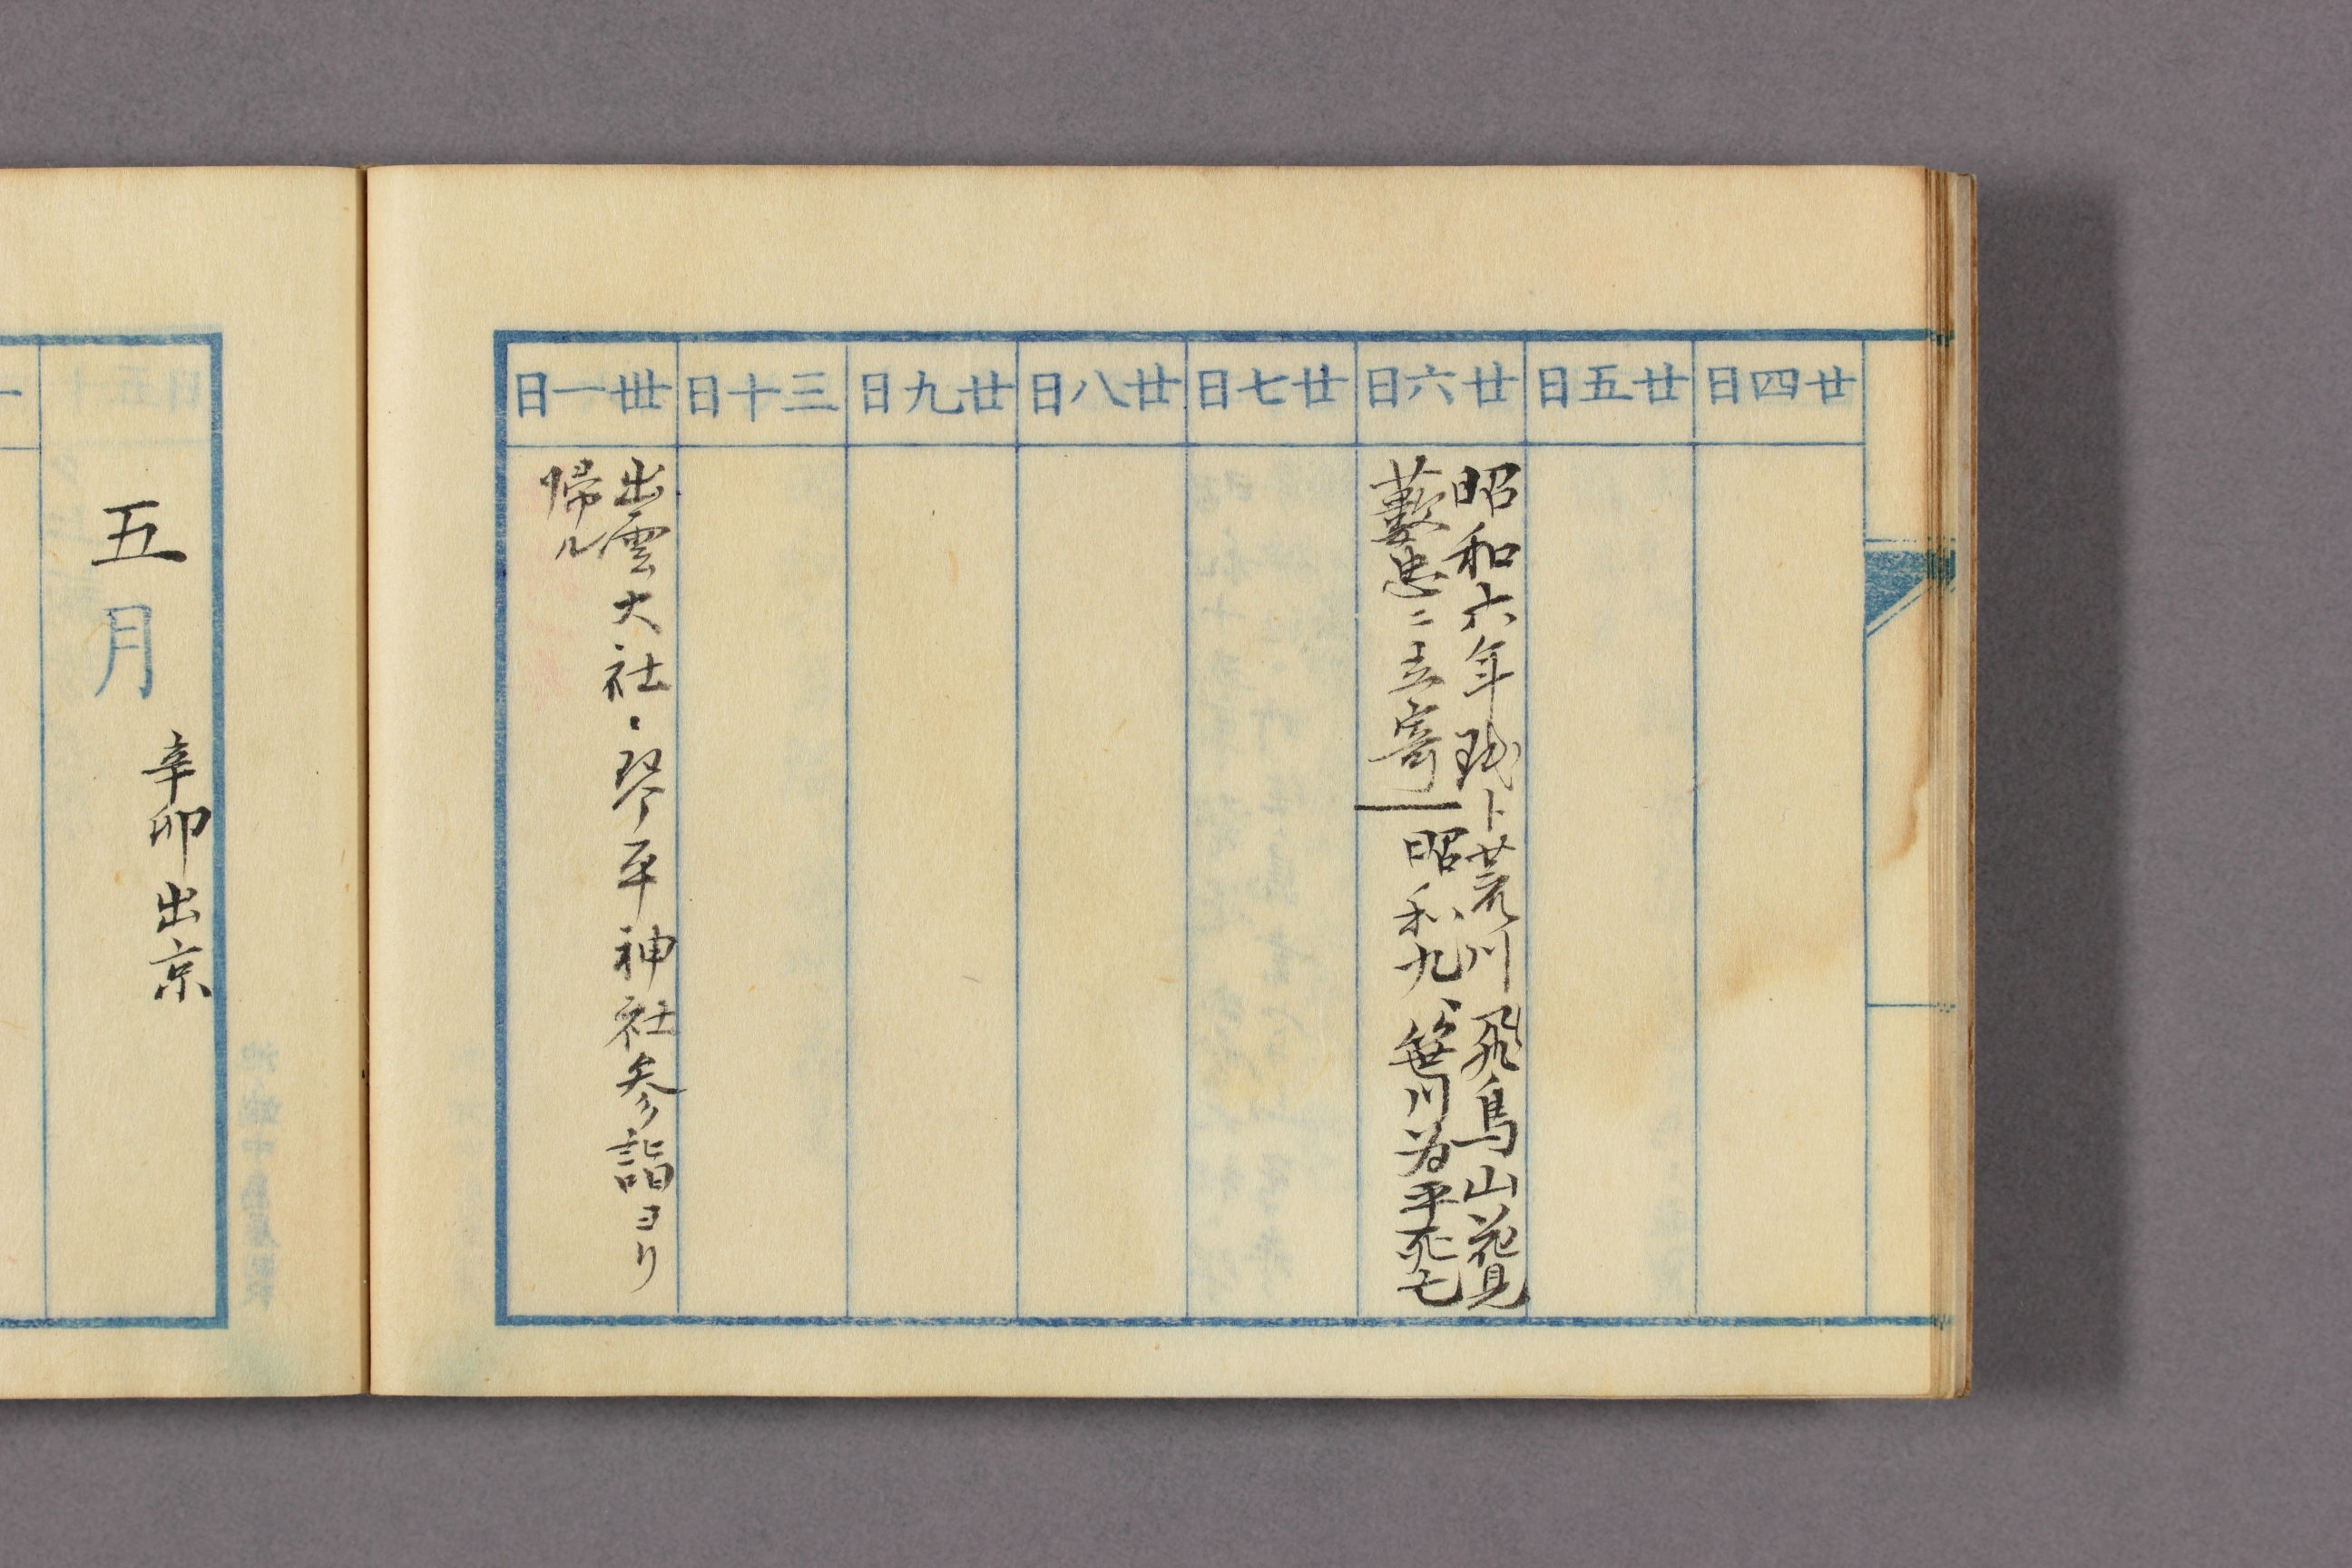 廿四日
廿五日
廿六日
昭和六年 ト荒川飛鳥山花見
藪忠ニ立寄
昭和九、笹川為平死亡
廿七日
廿八日
廿九日
三十日
卅一日
出雲大社・琴平神社参詣ヨリ
帰ル
五月
辛卯出京